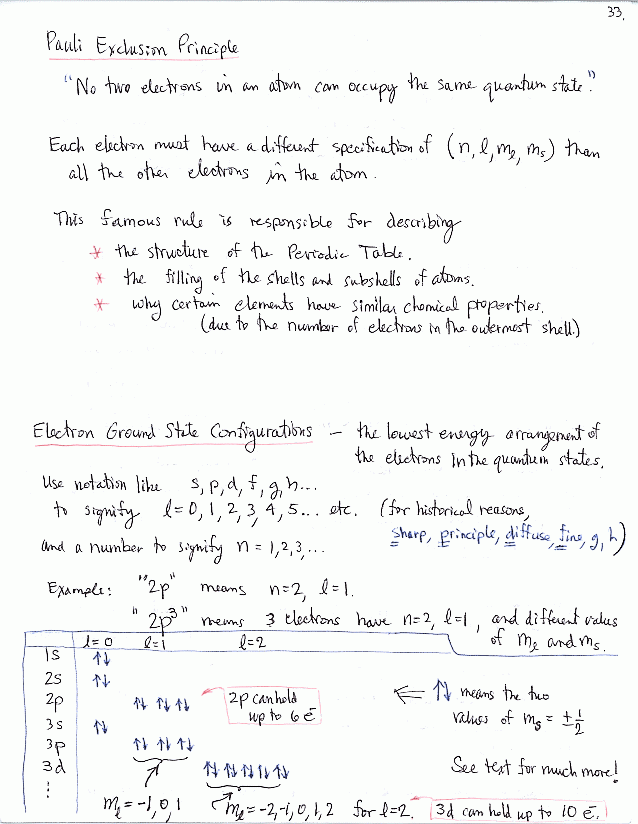 33.
Pauli Exclusion Principle
"No two electrons in an atom can occupy the same quantum state."
Each electron must have a different specification of (n, l, mₗ, mₛ) than
all the other electrons in the atom.
This famous rule is responsible for describing
* the structure of the Periodic Table.
* the filling of the shells and subshells of atoms.
* why certain elements have similar chemical properties.
(due to the number of electrons in the outermost shell)
Electron Ground State Configurations – the lowest energy arrangement of
the electrons in the quantum states.
Use notation like s, p, d, f, g, h...
to signify l = 0, 1, 2, 3, 4, 5... etc. (for historical reasons,
sharp, principle, diffuse, fine, g, h)
and a number to signify n = 1, 2, 3, ...
Example: "2p" means n=2, l=1.
"2p³" means 3 electrons have n=2, l=1, and different values
of mₗ and mₛ.
l=0 l=1 l=2
1s ↑↓
2s ↑↓
2p ↑↓ ↑↓ ↑↓ 2p can hold
up to 6 e⁻
⇐ ↑↓ means the two
values of mₛ = ±1/2
3s ↑↓
3p ↑↓ ↑↓ ↑↓
3d ↑↓ ↑↓ ↑↓ ↑↓ ↑↓ See text for much more!
⋮
mₗ = -1, 0, 1 mₗ = -2, -1, 0, 1, 2 for l=2. 3d can hold up to 10 e⁻.